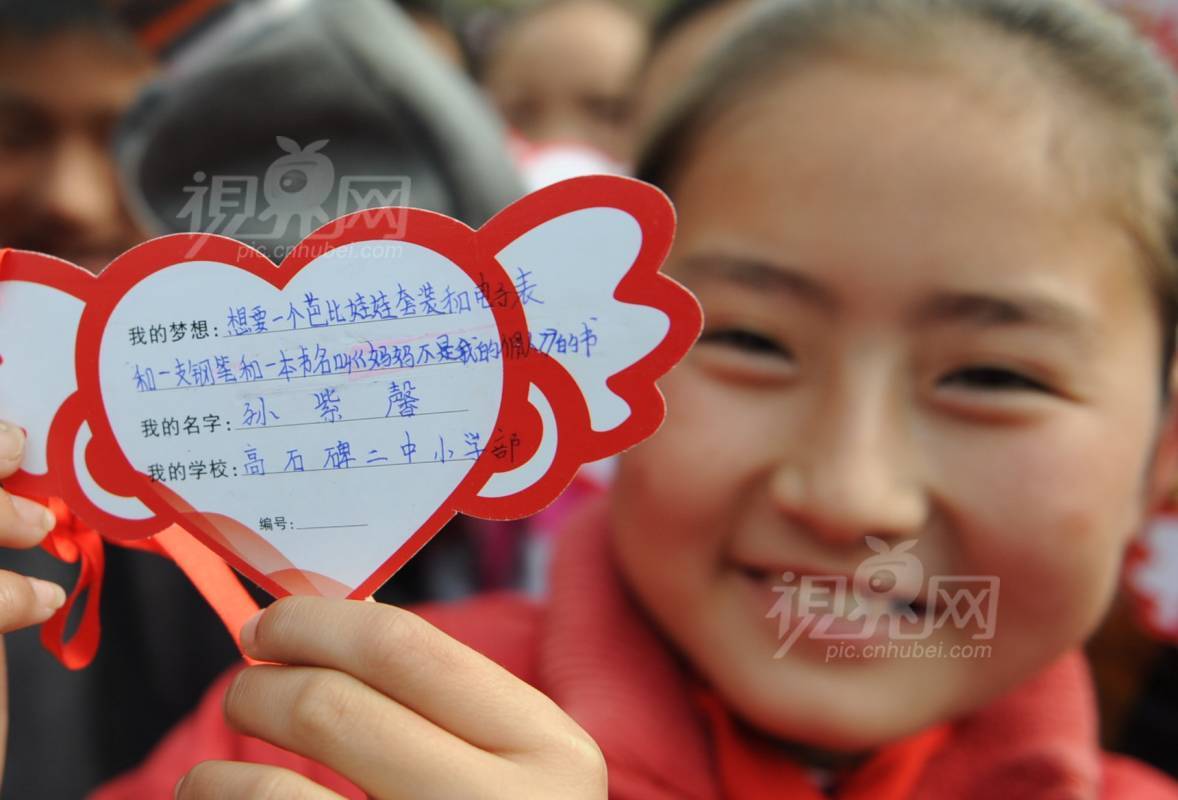 视界网
pic.cnhubei.com
我的梦想:想要一个芭比娃娃套装和电子表
和一支钢笔和一本书名叫《妈妈不是我的佣人》的书
我的名字:孙紫馨
我的学校:高石碑二中小学部
编号:
视界网
pic.cnhubei.com